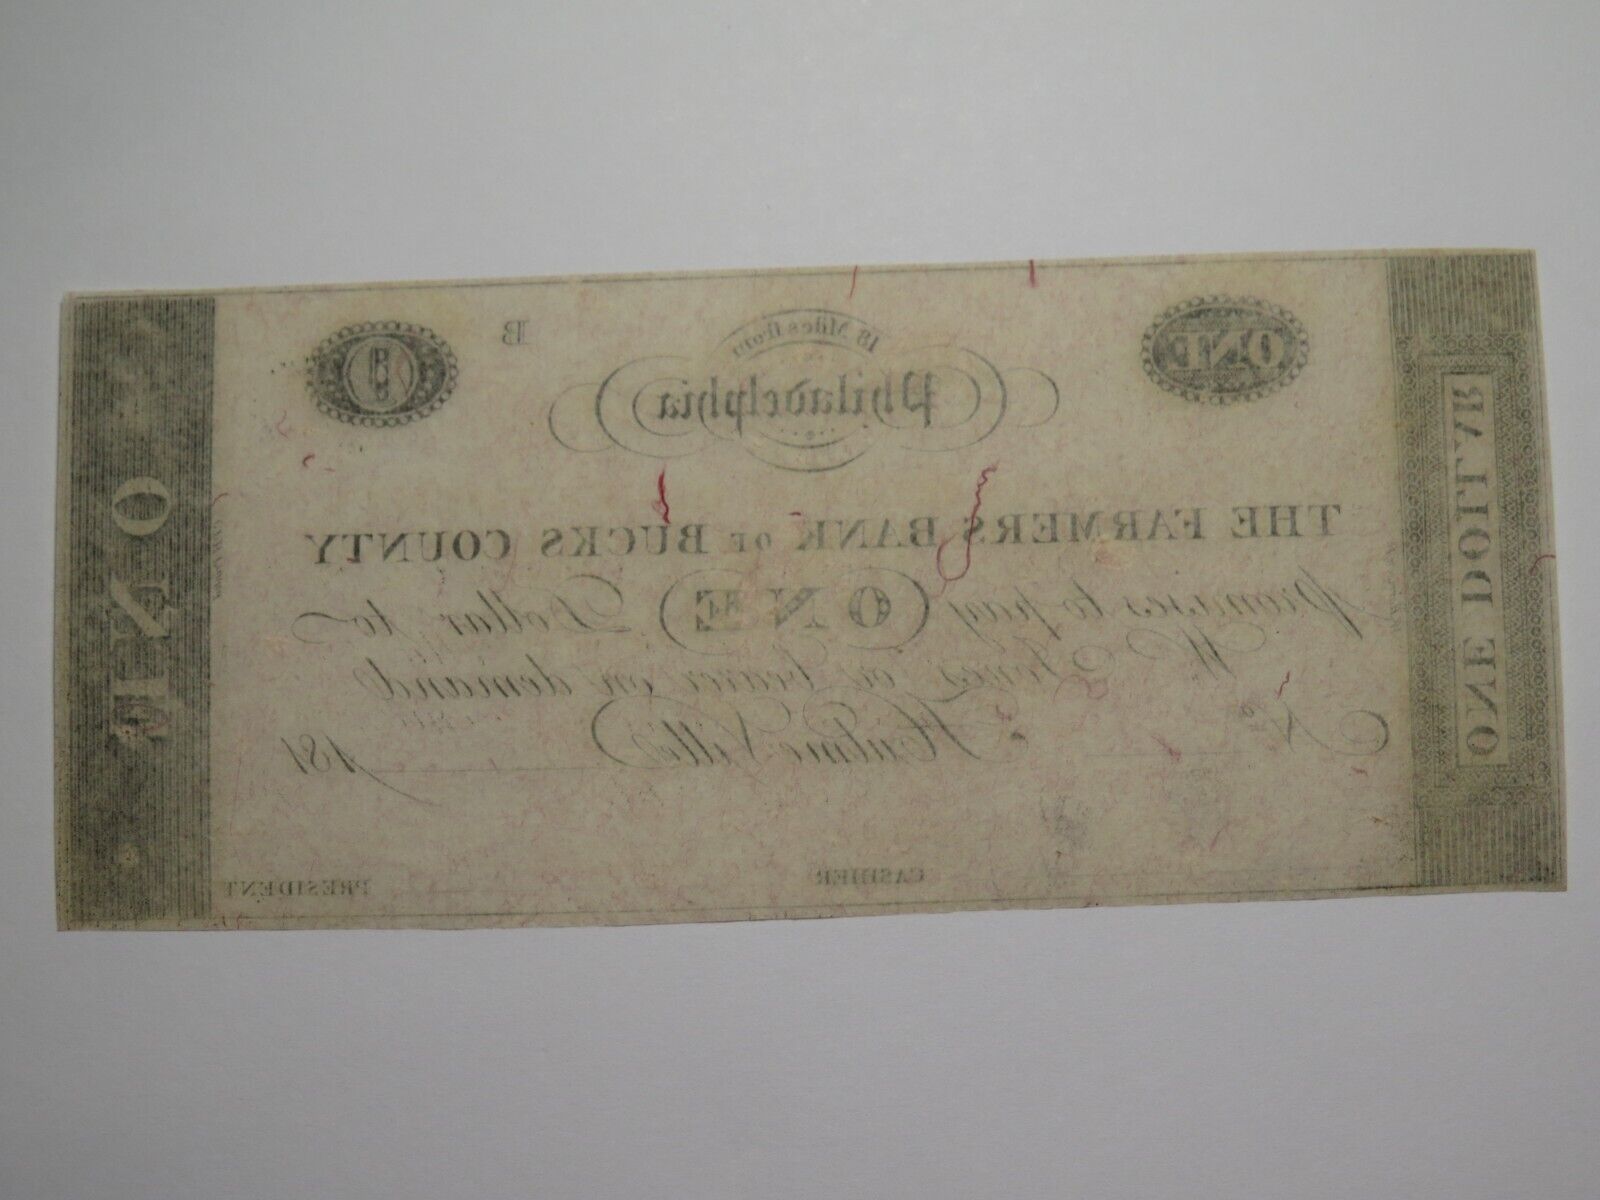 ONE
18 Miles from
B
Philadelphia
THE FARMERS BANK OF BUCKS COUNTY
promises to pay ONE Dollar, to
Wm. or bearer on demand
No. Hulme Ville 181
CASHIER
PRESIDENT
ONE DOLLAR
ONE